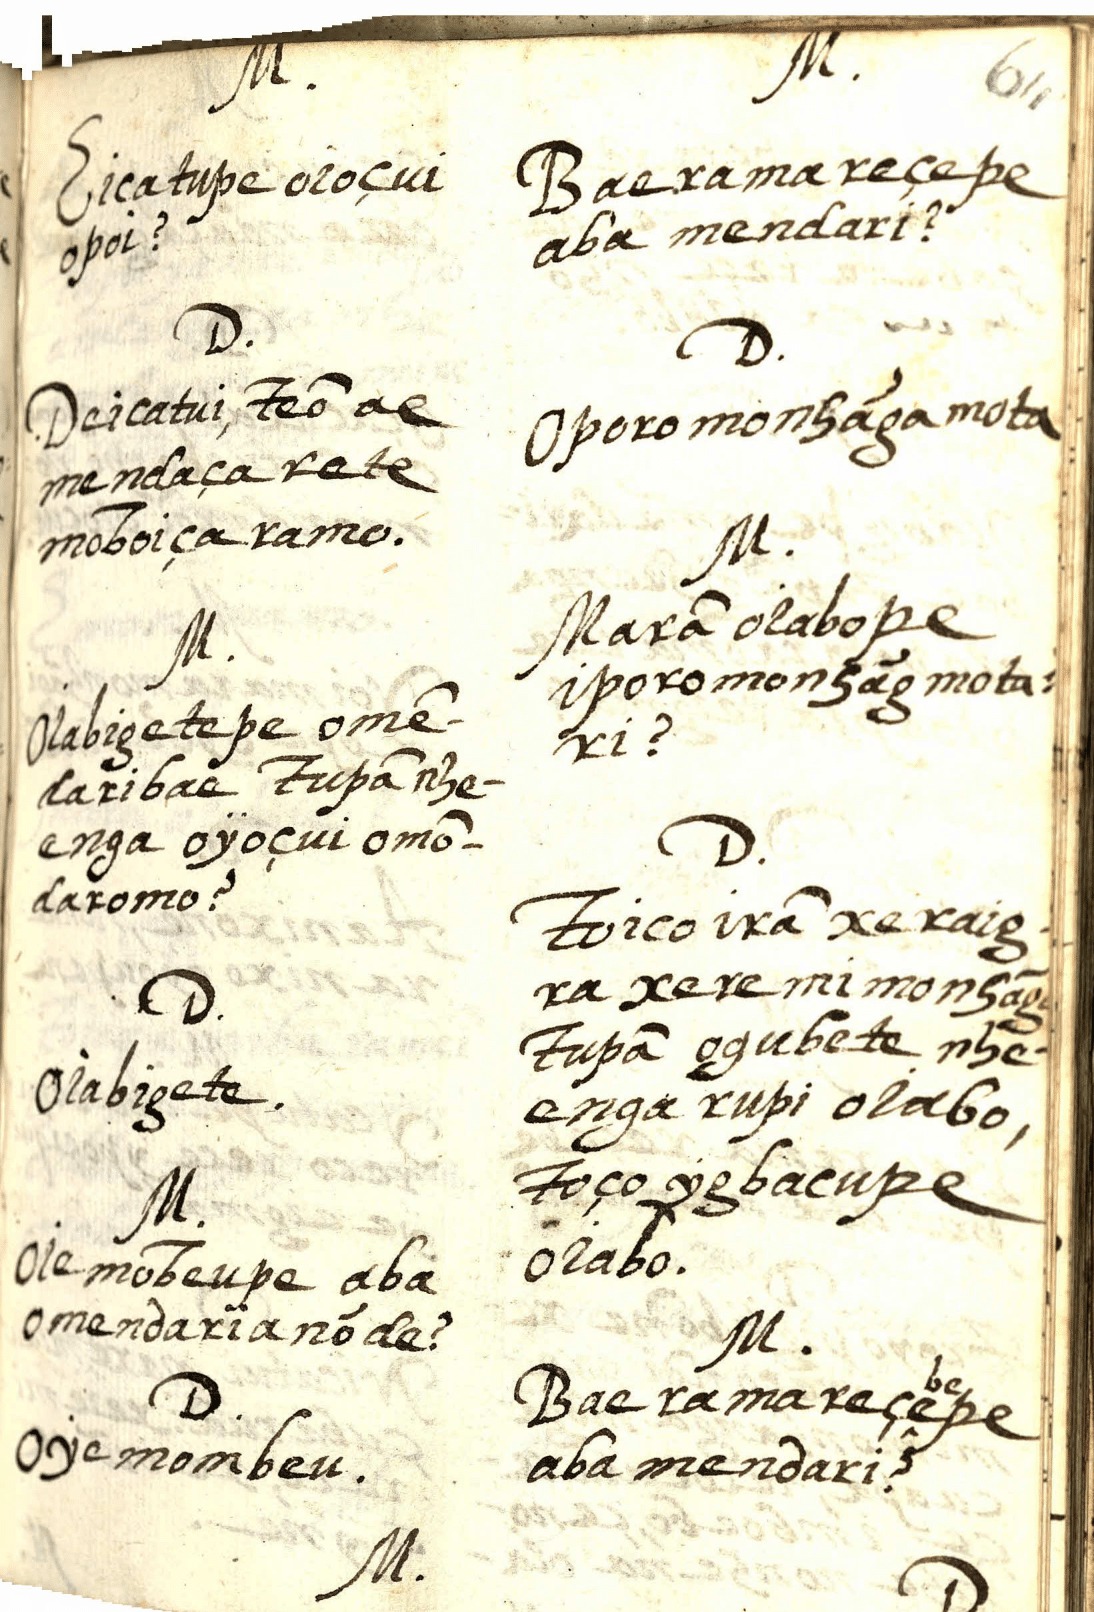 M.
Eicatupe oioçui
opoi?
D.
Deicatui, teõ ae
mendaçarete
mõboiçaramo.
M.
Oiabigetepe omẽ-
daribae Tupã nhe-
enga oÿoçui omõ-
daromo?
D.
Oiabigete.
M.
Oiemõbeupe aba
omendariianõde?
D.
Oyemombeu.
M.
M.
Baeramareçepe
aba mendari?
D.
Oporomonhãgamota
M.
Marã oiabope
iporomonhãgmota-
ri?
D.
Toico irã xeraig-
ra xeremimonhãga
Tupã ogubete nhe-
enga rupi oiabo,
toço ÿgbacupe
oiabo.
M.
Baeramareçebepe
aba mendari?
D